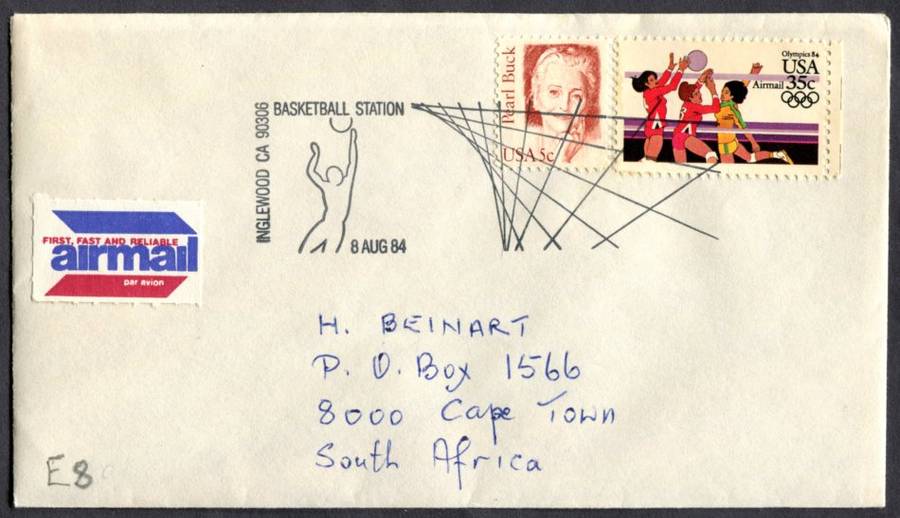 INGLEWOOD CA 90306
BASKETBALL STATION
8 AUG 84
Pearl Buck
USA 5c
Olympics 84
USA
Airmail 35c
FIRST, FAST AND RELIABLE
airmail
par avion
H. BEINART
P. O. Box 1566
8000 Cape Town
South Africa
E8